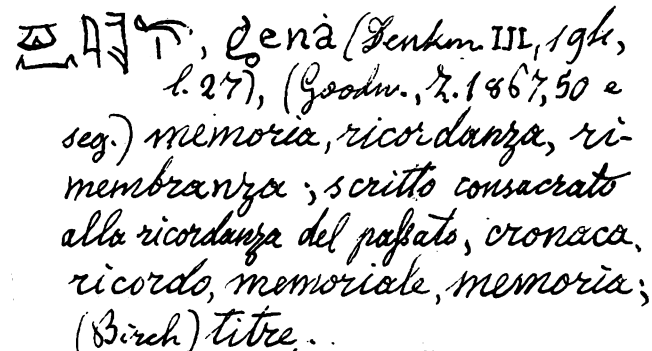 , genà (Denkm. III, 194,
l. 27), (Goodw., Z. 1867, 50 e
seg.) memoria, ricordanza, ri-
membranza; scritto consacrato
alla ricordanza del paſsato, cronaca,
ricordo, memoriale, memoria;
(Birch) titre.